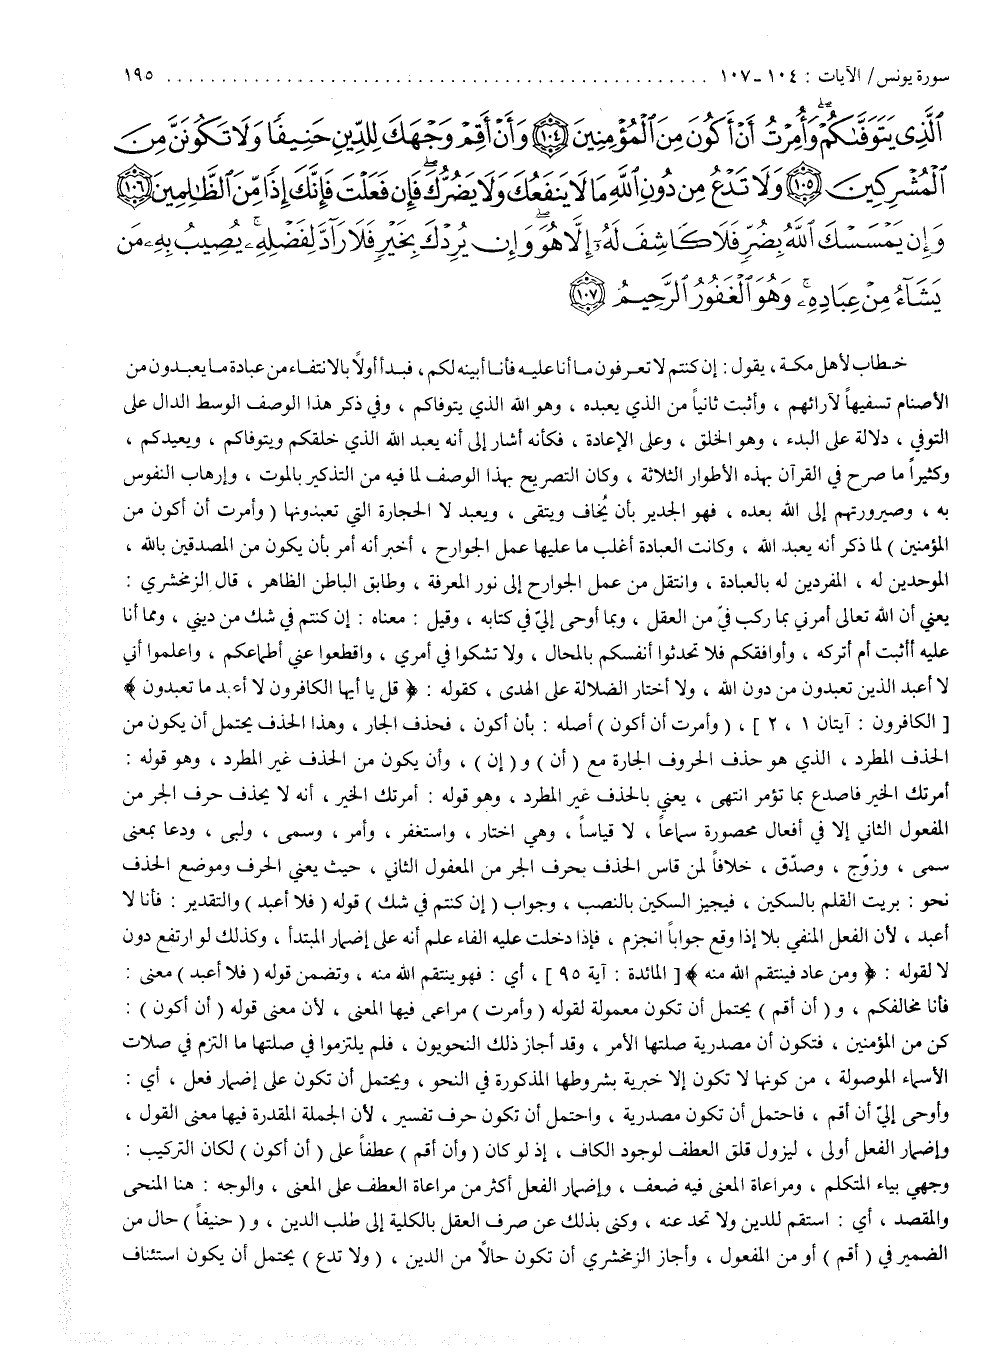 سورة يونس/ الآيات : ١٠٤ -١٠٧ ................................................ ١٩٥
ٱلَّذِى يَتَوَفَّىٰكُمْ ۖ وَأُمِرْتُ أَنْ أَكُونَ مِنَ ٱلْمُؤْمِنِينَ ﴿١٠٤﴾ وَأَنْ أَقِمْ وَجْهَكَ لِلدِّينِ حَنِيفًا وَلَا تَكُونَنَّ مِنَ
ٱلْمُشْرِكِينَ ﴿١٠٥﴾ وَلَا تَدْعُ مِن دُونِ ٱللَّهِ مَا لَا يَنفَعُكَ وَلَا يَضُرُّكَ ۖ فَإِن فَعَلْتَ فَإِنَّكَ إِذًا مِّنَ ٱلظَّٰلِمِينَ ﴿١٠٦﴾
وَإِن يَمْسَسْكَ ٱللَّهُ بِضُرٍّ فَلَا كَاشِفَ لَهُۥٓ إِلَّا هُوَ ۖ وَإِن يُرِدْكَ بِخَيْرٍ فَلَا رَآدَّ لِفَضْلِهِۦ ۚ يُصِيبُ بِهِۦ مَن
يَشَآءُ مِنْ عِبَادِهِۦ ۚ وَهُوَ ٱلْغَفُورُ ٱلرَّحِيمُ ﴿١٠٧﴾
خطاب لأهل مكة ، يقول : إن كنتم لا تعرفون ما أنا عليه فأنا أبينه لكم ، فبدأ أولاً بالانتفاء من عبادة ما يعبدون من
الأصنام تسفيهاً لآرائهم ، وأثبت ثانياً من الذي يعبده ، وهو الله الذي يتوفاكم ، وفي ذكر هذا الوصف الوسط الدال على
التوفي ، دلالة على البدء ، وهو الخلق ، وعلى الإعادة ، فكأنه أشار إلى أنه يعبد الله الذي خلقكم ويتوفاكم ، ويعيدكم ،
وكثيراً ما صرح في القرآن بهذه الأطوار الثلاثة ، وكان التصريح بهذا الوصف لما فيه من التذكير بالموت ، وإرهاب النفوس
به ، وصيرورتهم إلى الله بعده ، فهو الجدير بأن يُخاف ويتقى ، ويعبد لا الحجارة التي تعبدونها ( وأمرت أن أكون من
المؤمنين ) لما ذكر أنه يعبد الله ، وكانت العبادة أغلب ما عليها عمل الجوارح ، أخبر أنه أمر بأن يكون من المصدقين بالله ،
الموحدين له ، المفردين له بالعبادة ، وانتقل من عمل الجوارح إلى نور المعرفة ، وطابق الباطن الظاهر ، قال الزمخشري :
يعني أن الله تعالى أمرني بما ركب فيّ من العقل ، وبما أوحى إليّ في كتابه ، وقيل : معناه : إن كنتم في شك من ديني ، ومما أنا
عليه أأثبت أم أتركه ، وأوافقكم فلا تحدثوا أنفسكم بالمحال ، ولا تشكوا في أمري ، واقطعوا عني أطماعكم ، واعلموا أني
لا أعبد الذين تعبدون من دون الله ، ولا أختار الضلالة على الهدى ، كقوله : ﴿ قل يا أيها الكافرون لا أعبد ما تعبدون ﴾
[ الكافرون : آيتان ١ ، ٢ ] ، ( وأمرت أن أكون ) أصله : بأن أكون ، فحذف الجار ، وهذا الحذف يحتمل أن يكون من
الحذف المطرد ، الذي هو حذف الحروف الجارة مع ( أن ) و( إن ) ، وأن يكون من الحذف غير المطرد ، وهو قوله :
أمرتك الخير فاصدع بما تؤمر انتهى ، يعني بالحذف غير المطرد ، وهو قوله : أمرتك الخير ، أنه لا يحذف حرف الجر من
المفعول الثاني إلا في أفعال محصورة سماعاً ، لا قياساً ، وهي اختار ، واستغفر ، وأمر ، وسمى ، ولبى ، ودعا بمعنى
سمى ، وزوّج ، وصدّق ، خلافاً لمن قاس الحذف بحرف الجر من المعفول الثاني ، حيث يعني الحرف وموضع الحذف
نحو : بريت القلم بالسكين ، فيجيز السكين بالنصب ، وجواب ( إن كنتم في شك ) قوله ( فلا أعبد ) والتقدير : فأنا لا
أعبد ، لأن الفعل المنفي بلا إذا وقع جواباً انجزم ، فإذا دخلت عليه الفاء علم أنه على إضمار المبتدأ ، وكذلك لو ارتفع دون
لا لقوله : ﴿ ومن عاد فينتقم الله منه ﴾ [ المائدة : آية ٩٥ ] ، أي : فهو ينتقم الله منه ، وتضمن قوله ( فلا أعبد ) معنى :
فأنا مخالفكم ، و( أن أقم ) يحتمل أن تكون معمولة لقوله ( وأمرت ) مراعى فيها المعنى ، لأن معنى قوله ( أن أكون ) :
كن من المؤمنين ، فتكون أن مصدرية صلتها الأمر ، وقد أجاز ذلك النحويون ، فلم يلتزموا في صلتها ما التزم في صلات
الأسماء الموصولة ، من كونها لا تكون إلا خبرية بشروطها المذكورة في النحو ، ويحتمل أن تكون على إضمار فعل ، أي :
وأوحى إليّ أن أقم ، فاحتمل أن تكون مصدرية ، واحتمل أن تكون حرف تفسير ، لأن الجملة المقدرة فيها معنى القول ،
وإضمار الفعل أولى ، ليزول قلق العطف لوجود الكاف ، إذ لو كان ( وأن أقم ) عطفاً على ( أن أكون ) لكان التركيب :
وجهي بياء المتكلم ، ومراعاة المعنى فيه ضعف ، وإضمار الفعل أكثر من مراعاة العطف على المعنى ، والوجه : هنا المنحى
والمقصد ، أي : استقم للدين ولا تحد عنه ، وكنى بذلك عن صرف العقل بالكلية إلى طلب الدين ، و( حنيفاً ) حال من
الضمير في ( أقم ) أو من المفعول ، وأجاز الزمخشري أن تكون حالًا من الدين ، ( ولا تدع ) يحتمل أن يكون استئناف